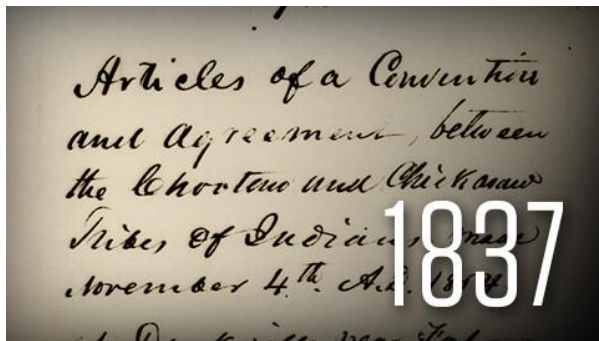 Articles of a Convention
and Agreement, between
the Choctaw and Chickasaw
Tribes of Indians made
November 4th A.D.
1837